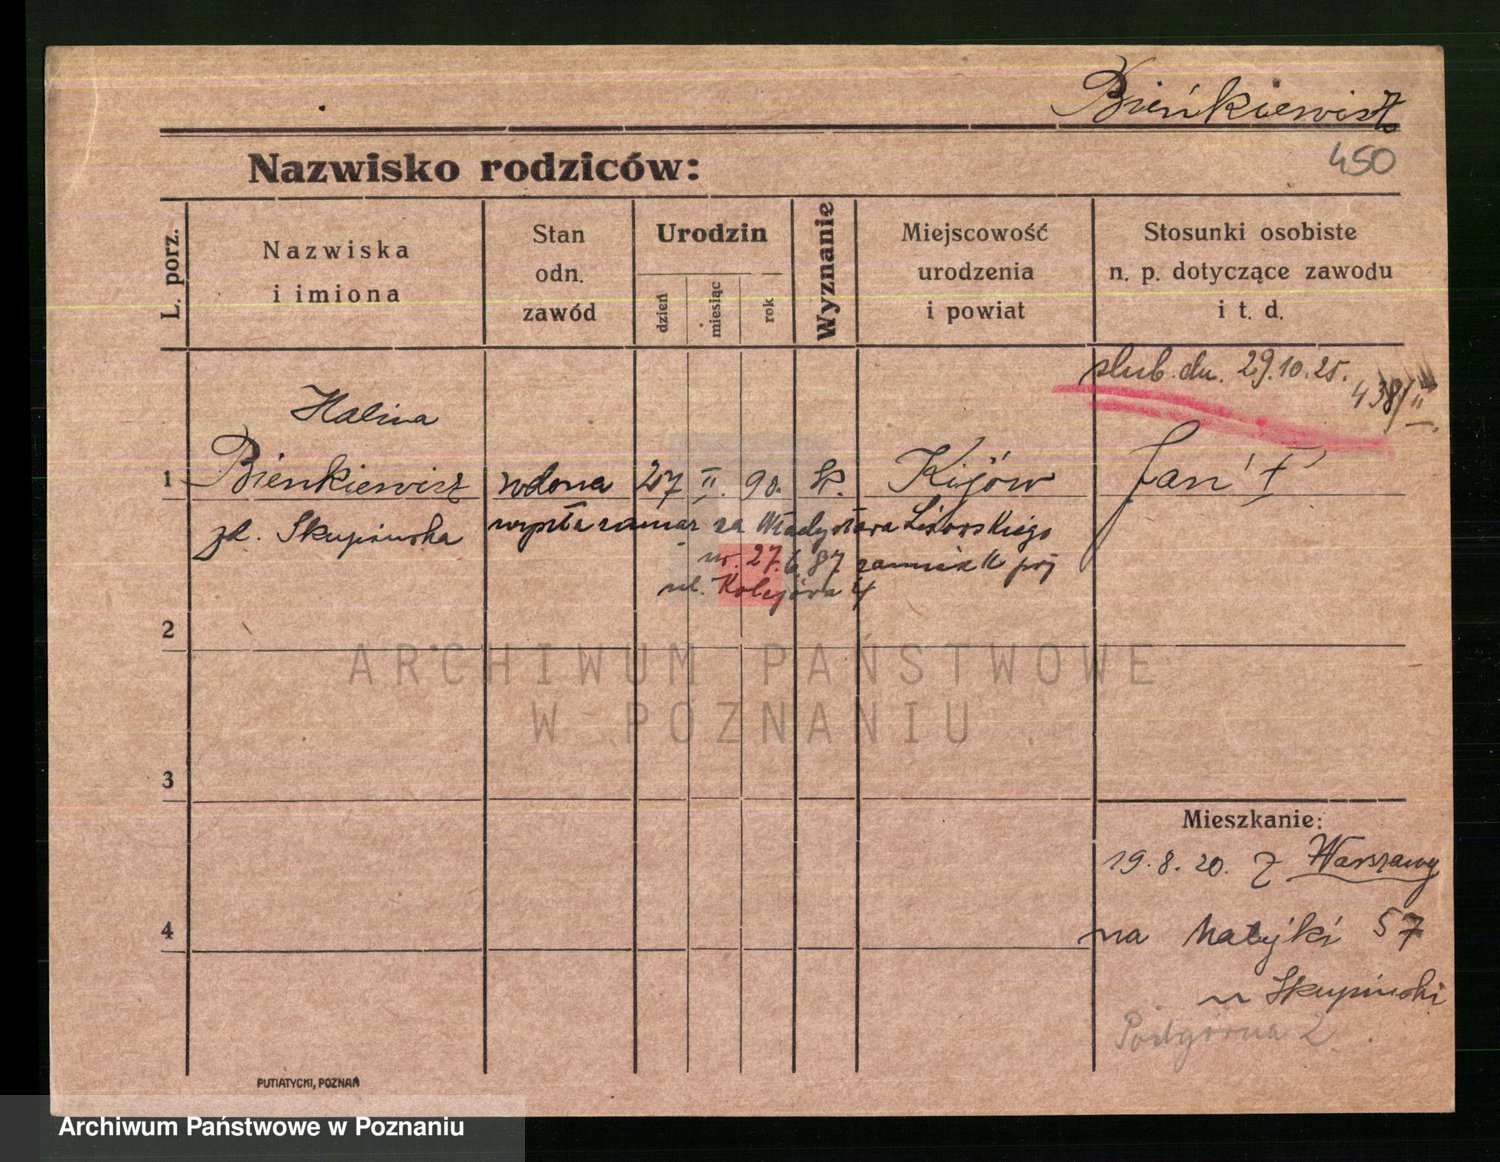 Bieńkiewicz
450
Nazwisko rodziców:
L. porz.
Nazwiska
i imiona
Stan
odn.
zawód
Urodzin
dzień
miesiąc
rok
Wyznanie
Miejscowość
urodzenia
i powiat
Stosunki osobiste
n. p. dotyczące zawodu
i t. d.
ślub. dn. 29.10.25.
438/II
Halina
1 Bienkiewicz wdowa 27 II. 90. K. Kijów Jan †
zd. Skupieńska wyszła zamąż za Władysława
ur. 27.6.87 zamieszk
ul. Kolejowa 4
2
ARCHIWUM PAŃSTWOWE
W POZNANIU
3
Mieszkanie:
19.8.20. z Warszawy
4
na Matejki 57
u Skupieński
Podgórna 2.
PUTIATYCKI, POZNAŃ
Archiwum Państwowe w Poznaniu